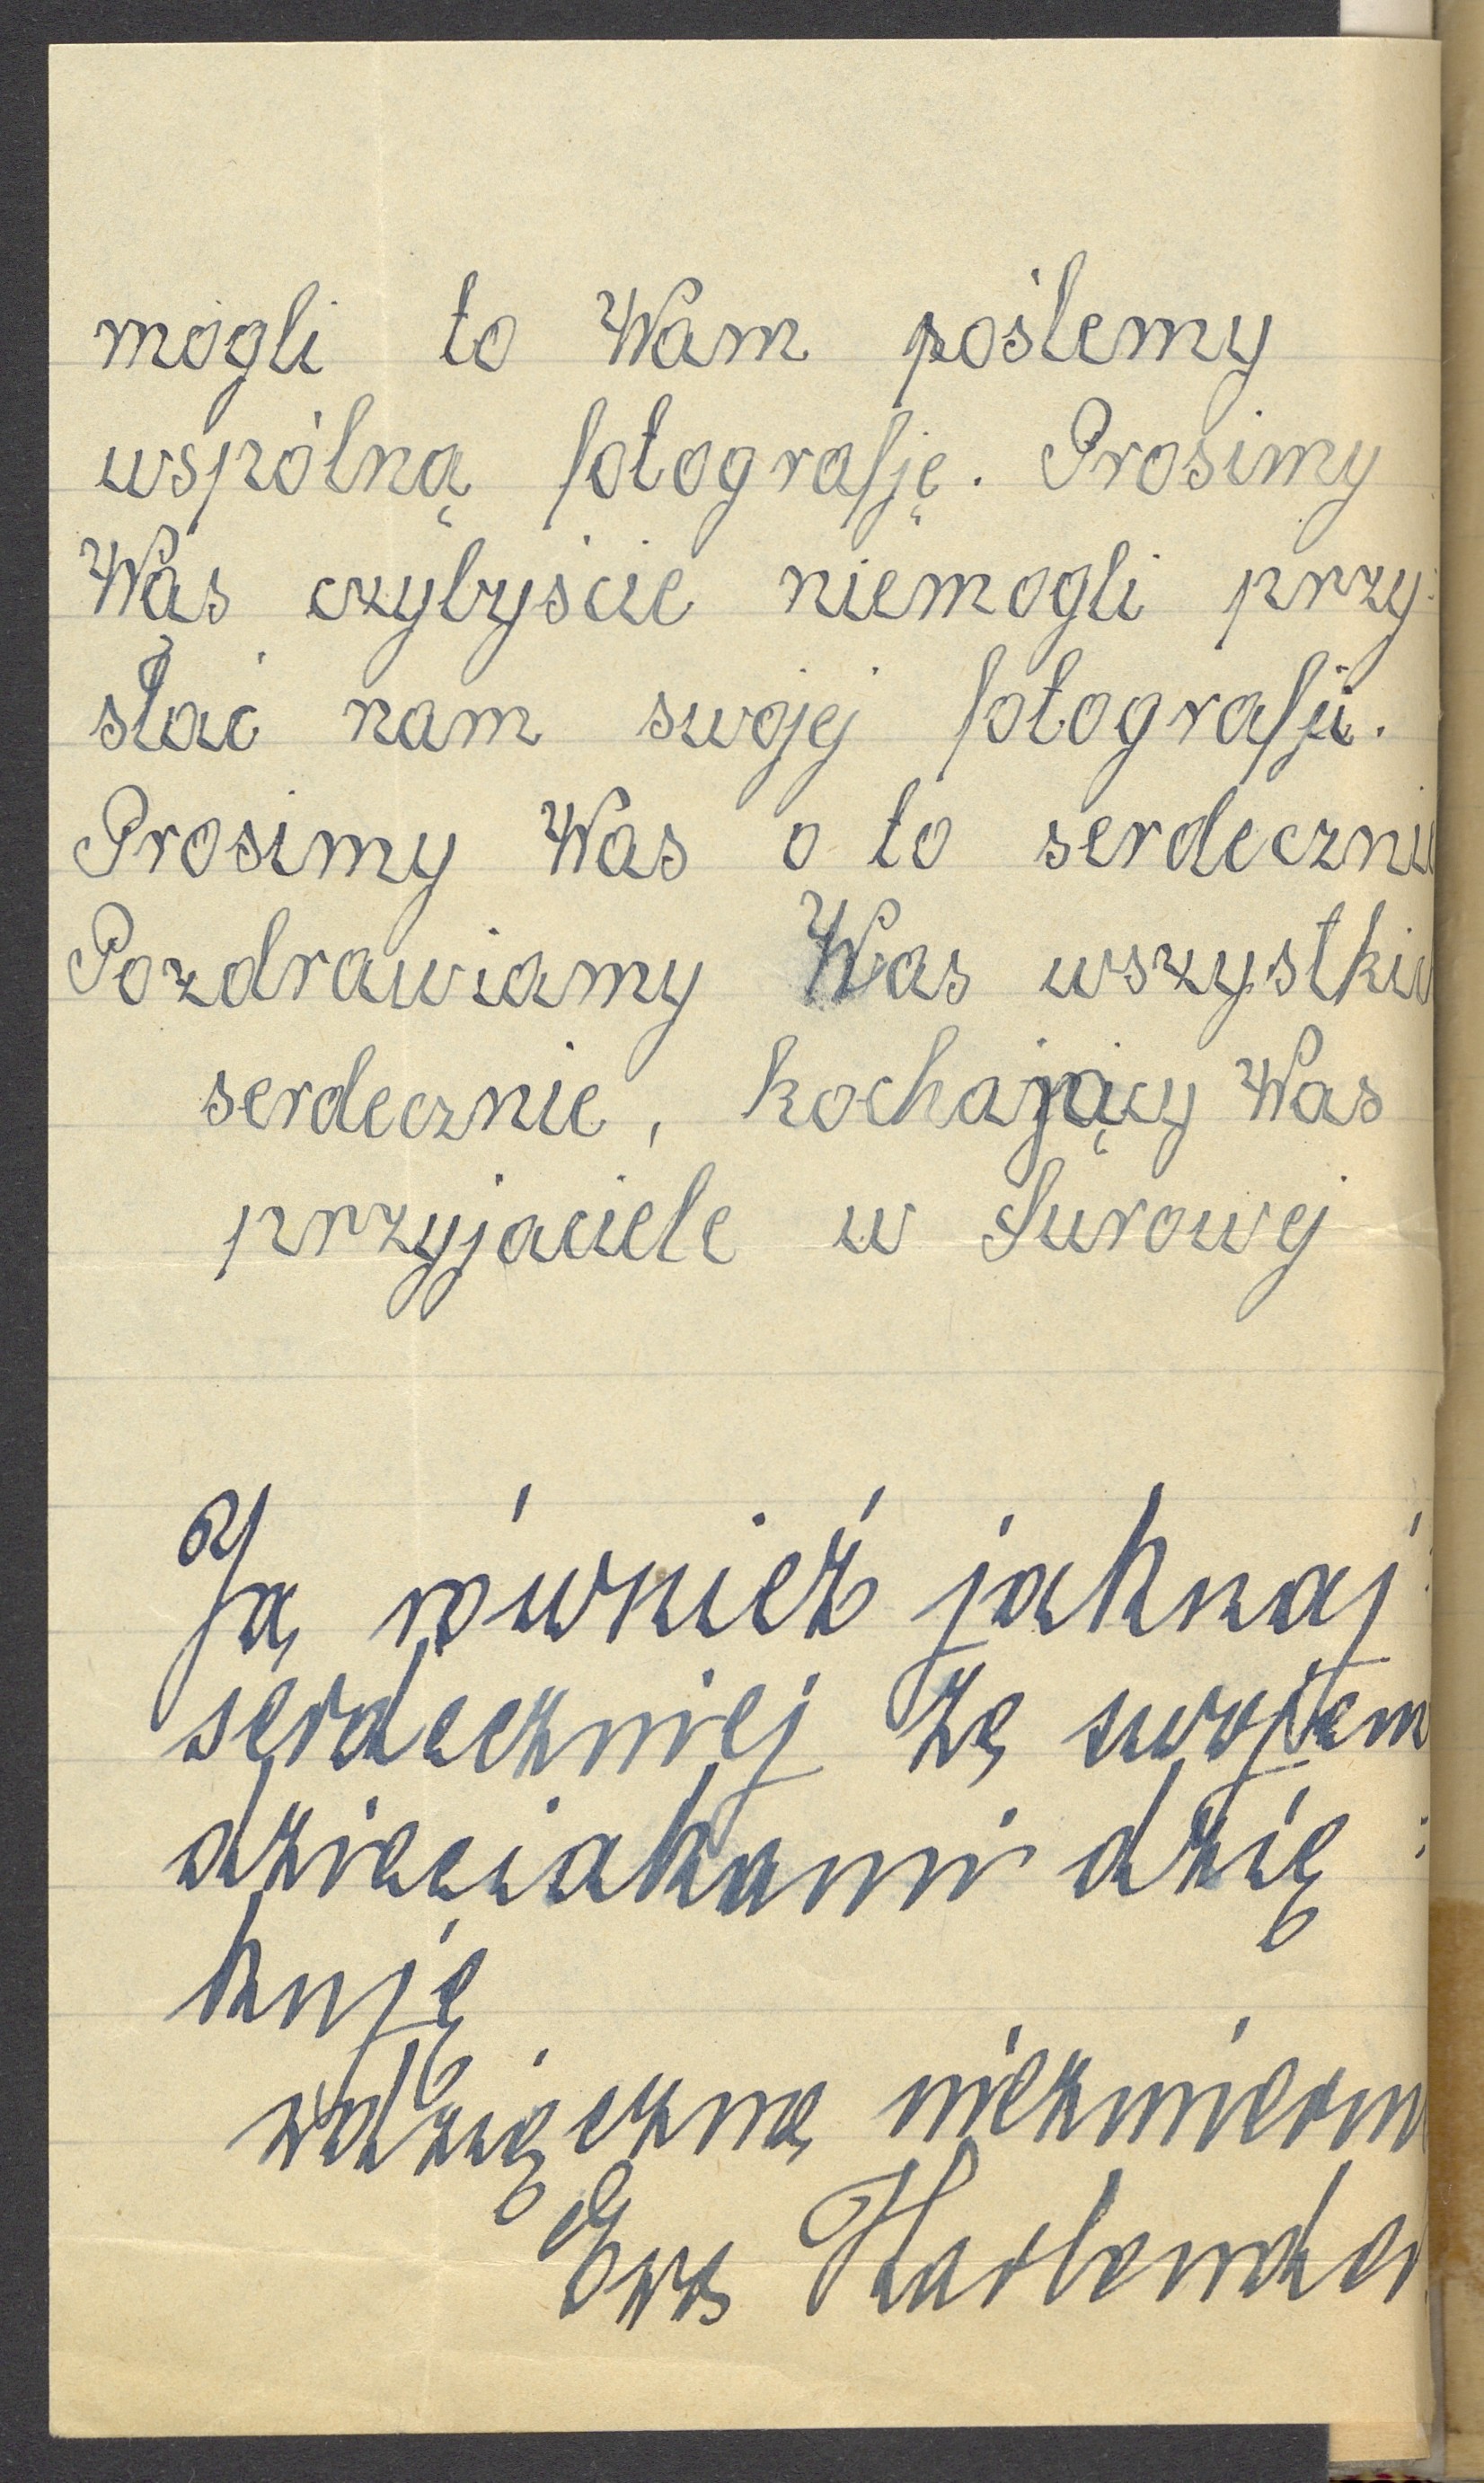 mogli to Wam poślemy
wspólną fotografję. Prosimy
Was czybyście niemogli przy-
słać nam swojej fotografji.
Prosimy Was o to serdecznie
Pozdrawiamy Was wszystkich
serdecznie, kochający Was
przyjaciele w Surowej
Ja również jaknaj-
serdeczniej ze swojem
dzieciakami dzię-
kuję
wdzięczna niezmiern
Ewa